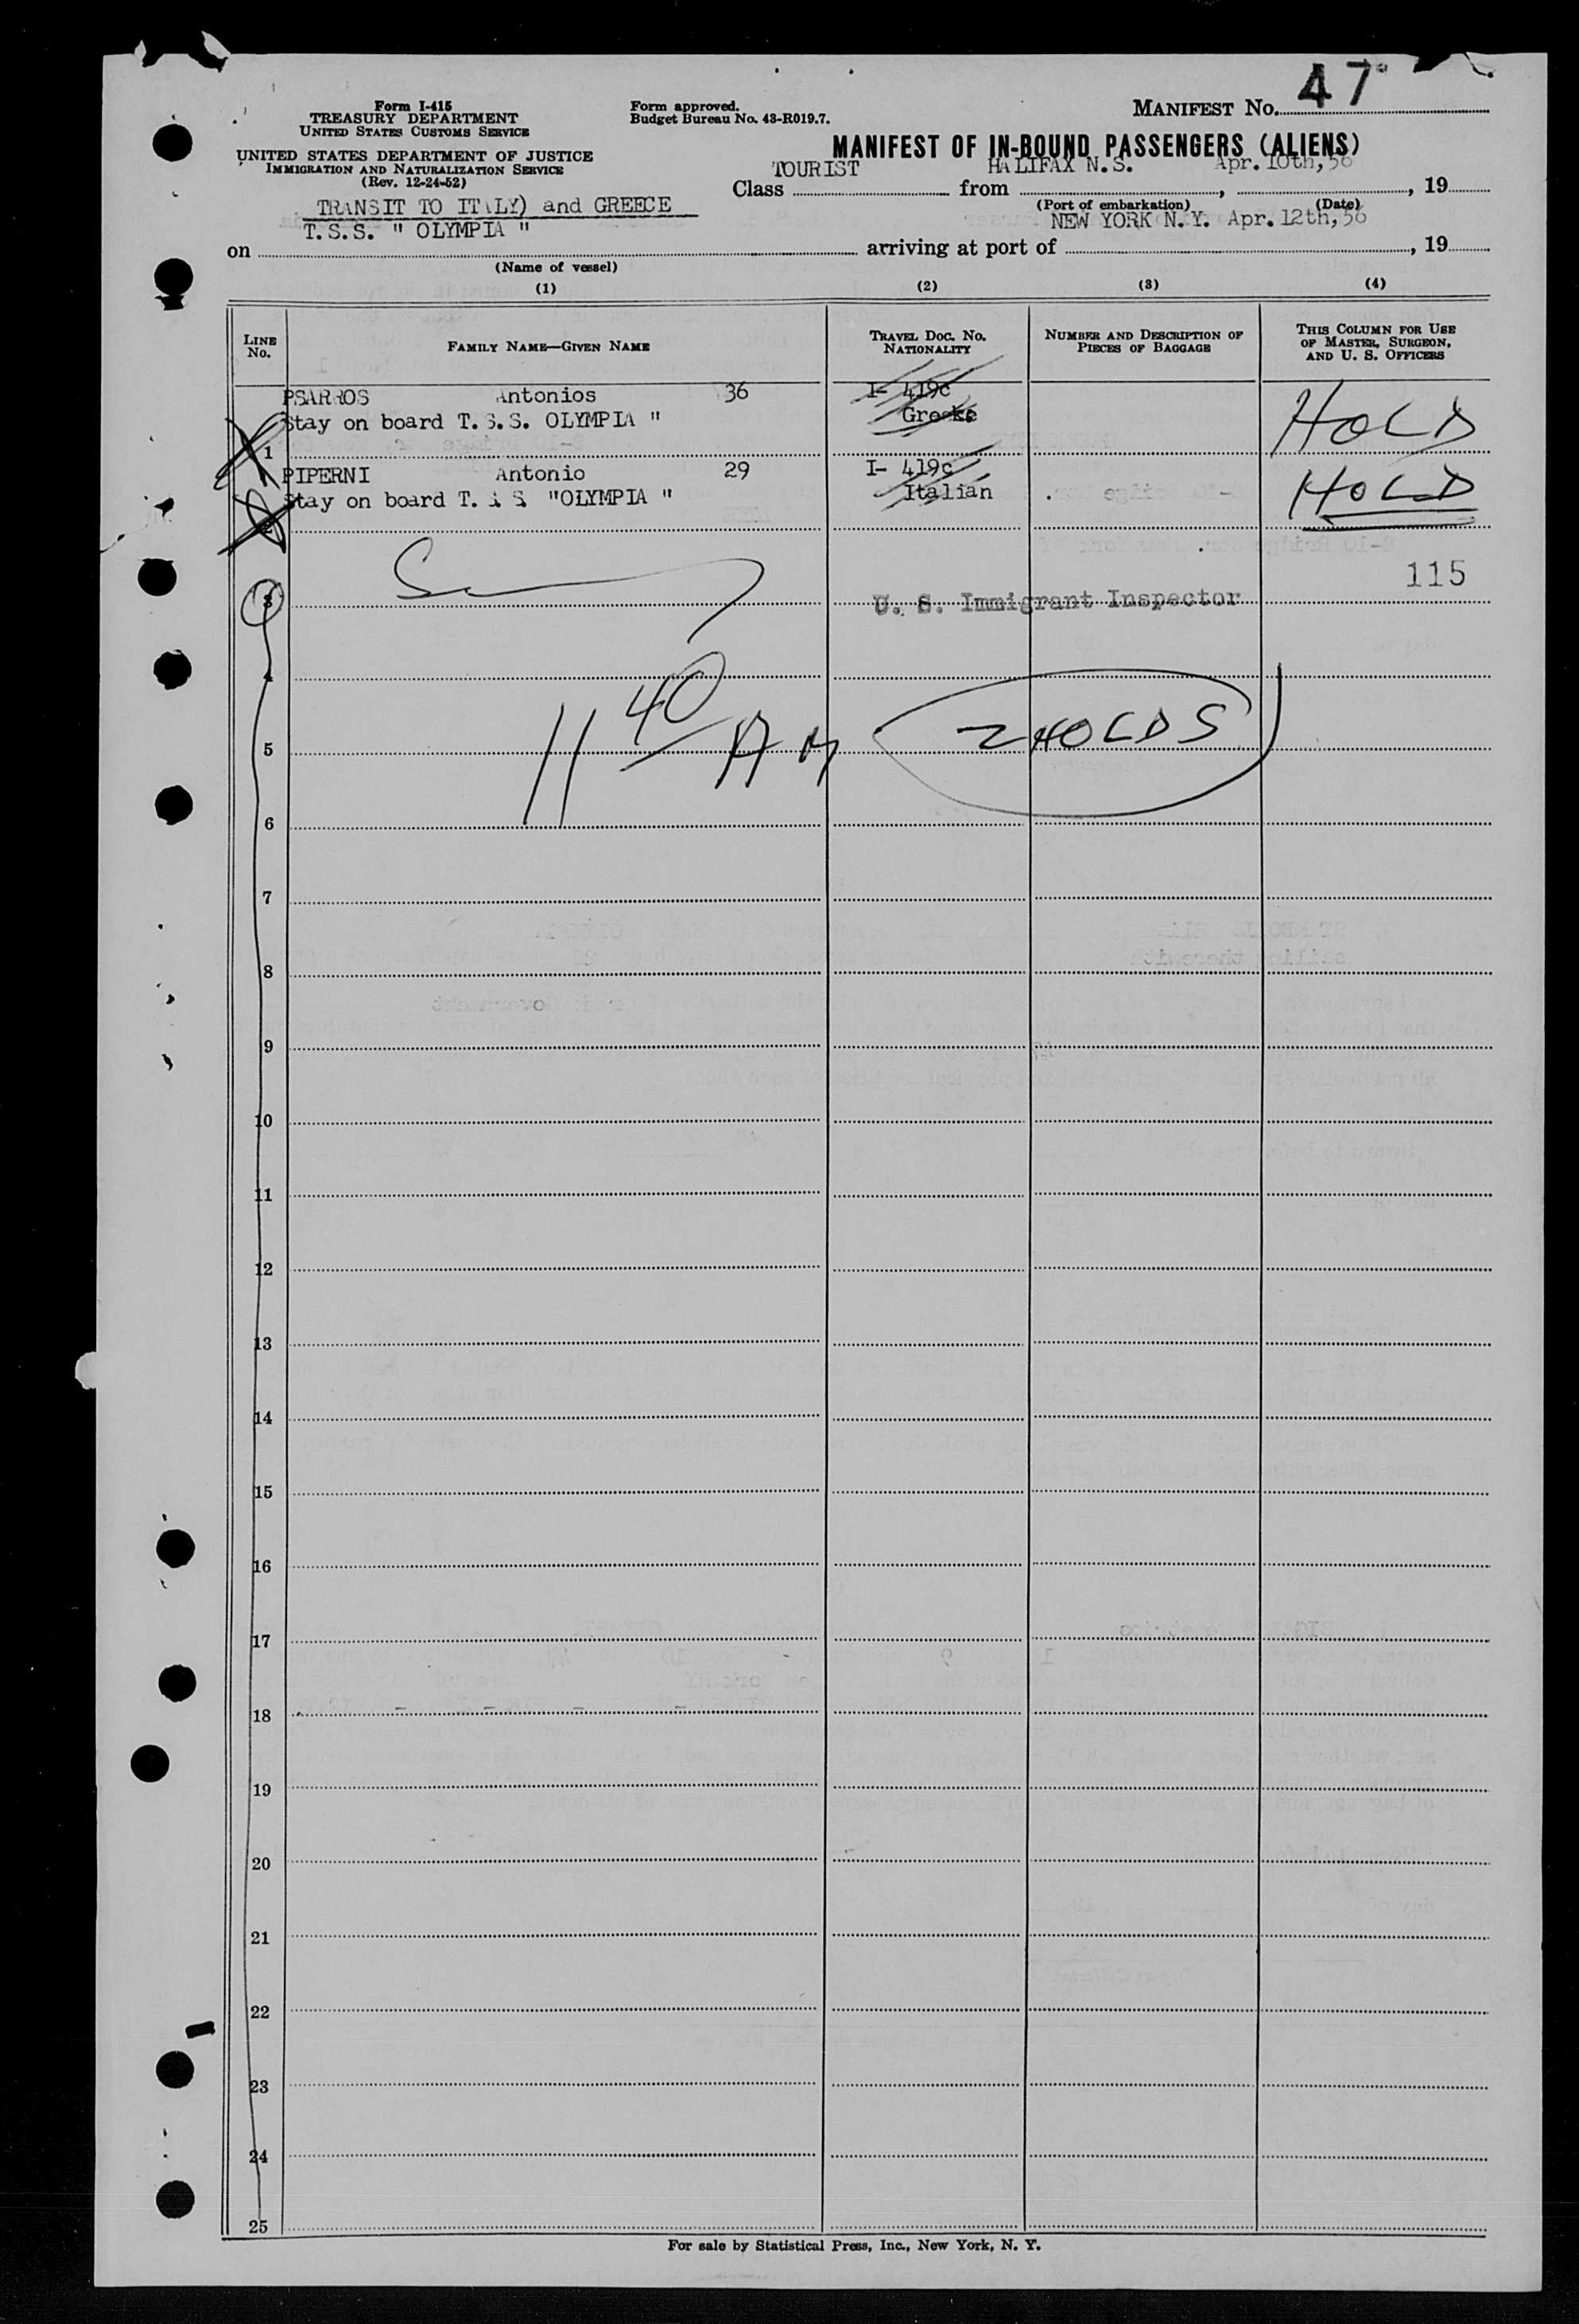 47
Form I-415
TREASURY DEPARTMENT
UNITED STATES CUSTOMS SERVICE
UNITED STATES DEPARTMENT OF JUSTICE
IMMIGRATION AND NATURALIZATION SERVICE
(Rev. 12-24-52)
Form approved.
Budget Bureau No. 43-R019.7.
MANIFEST No.
MANIFEST OF IN-BOUND PASSENGERS (ALIENS)
TOURIST HALIFAX N.S. Apr. 10th, 56
Class from , , 19
(Port of embarkation) (Date)
TRANSIT TO ITALY) and GREECE
T.S.S. " OLYMPIA " NEW YORK N.Y. Apr. 12th, 56
on arriving at port of , 19
(Name of vessel)
(1) (2) (3) (4)
LINE No. FAMILY NAME—GIVEN NAME TRAVEL DOC. NO. NATIONALITY NUMBER AND DESCRIPTION OF PIECES OF BAGGAGE THIS COLUMN FOR USE OF MASTER, SURGEON, AND U. S. OFFICERS
PSARROS Antonios 36 I- 419c HOLD
Stay on board T.S.S. OLYMPIA " Greeke
1
PIPERNI Antonio 29 I- 419c HOLD
Stay on board T. S S "OLYMPIA " Italian
2
115
3 U. S. Immigrant Inspector
4
11 40 AM 2 HOLDS
5
6
7
8
9
10
11
12
13
14
15
16
17
18
19
20
21
22
23
24
25
For sale by Statistical Press, Inc., New York, N. Y.